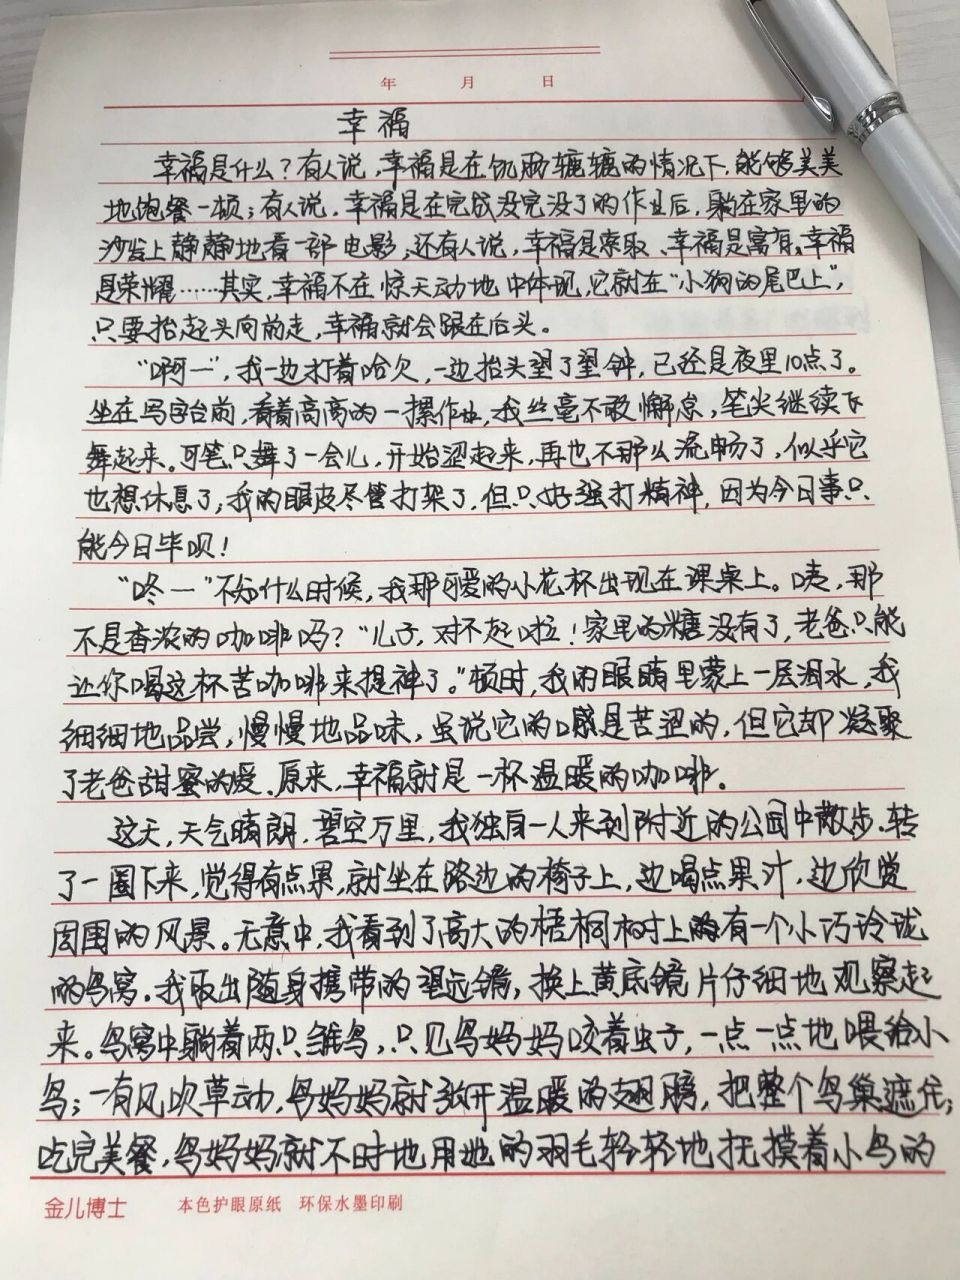 年 月 日
幸福
幸福是什么？有人说，幸福是在饥肠辘辘的情况下，能够美美
地饱餐一顿；有人说，幸福是在完成没完没了的作业后，躺在家里的
沙发上静静地看一部电影，还有人说，幸福是索取、幸福是富有、幸福
是荣耀……其实，幸福不在惊天动地中体现，它就在“小狗的尾巴上”，
只要抬起头向前走，幸福就会跟在后头。
“啊一”，我一边打着哈欠，一边抬头望了望钟，已经是夜里10点了。
坐在写字台前，看着高高的一摞作业，我丝毫不敢懈怠，笔尖继续飞
舞起来。可笔只舞了一会儿，开始涩起来，再也不那么流畅了，似乎它
也想休息了，我的眼皮尽管打架了，但只好强打精神，因为今日事只
能今日毕呗！
“咚一”不知什么时候，我那可爱的小花杯出现在课桌上。咦，那
不是香浓的咖啡吗？“儿子，对不起啦！家里的糖没有了，老爸只能
让你喝这杯苦咖啡来提神了。”顿时，我的眼睛里蒙上一层泪水，我
细细地品尝，慢慢地品味，虽说它的口感是苦涩的，但它却凝聚
了老爸甜蜜的爱。原来，幸福就是一杯温暖的咖啡。
这天，天气晴朗，碧空万里，我独自一人来到附近的公园中散步。转
了一圈下来，觉得有点累，就坐在路边的椅子上，边喝点果汁，边欣赏
周围的风景。无意中，我看到了高大的梧桐树上有一个小巧玲珑
的鸟窝。我取出随身携带的望远镜，换上黄底镜片仔细地观察起
来。鸟窝中躺着两只雏鸟，只见鸟妈妈咬着虫子，一点一点地喂给小
鸟；一有风吹草动，鸟妈妈就张开温暖的翅膀，把整个鸟巢遮住；
吃完美餐，鸟妈妈就不时地用她的羽毛轻轻地抚摸着小鸟的
金儿博士 本色护眼原纸 环保水墨印刷